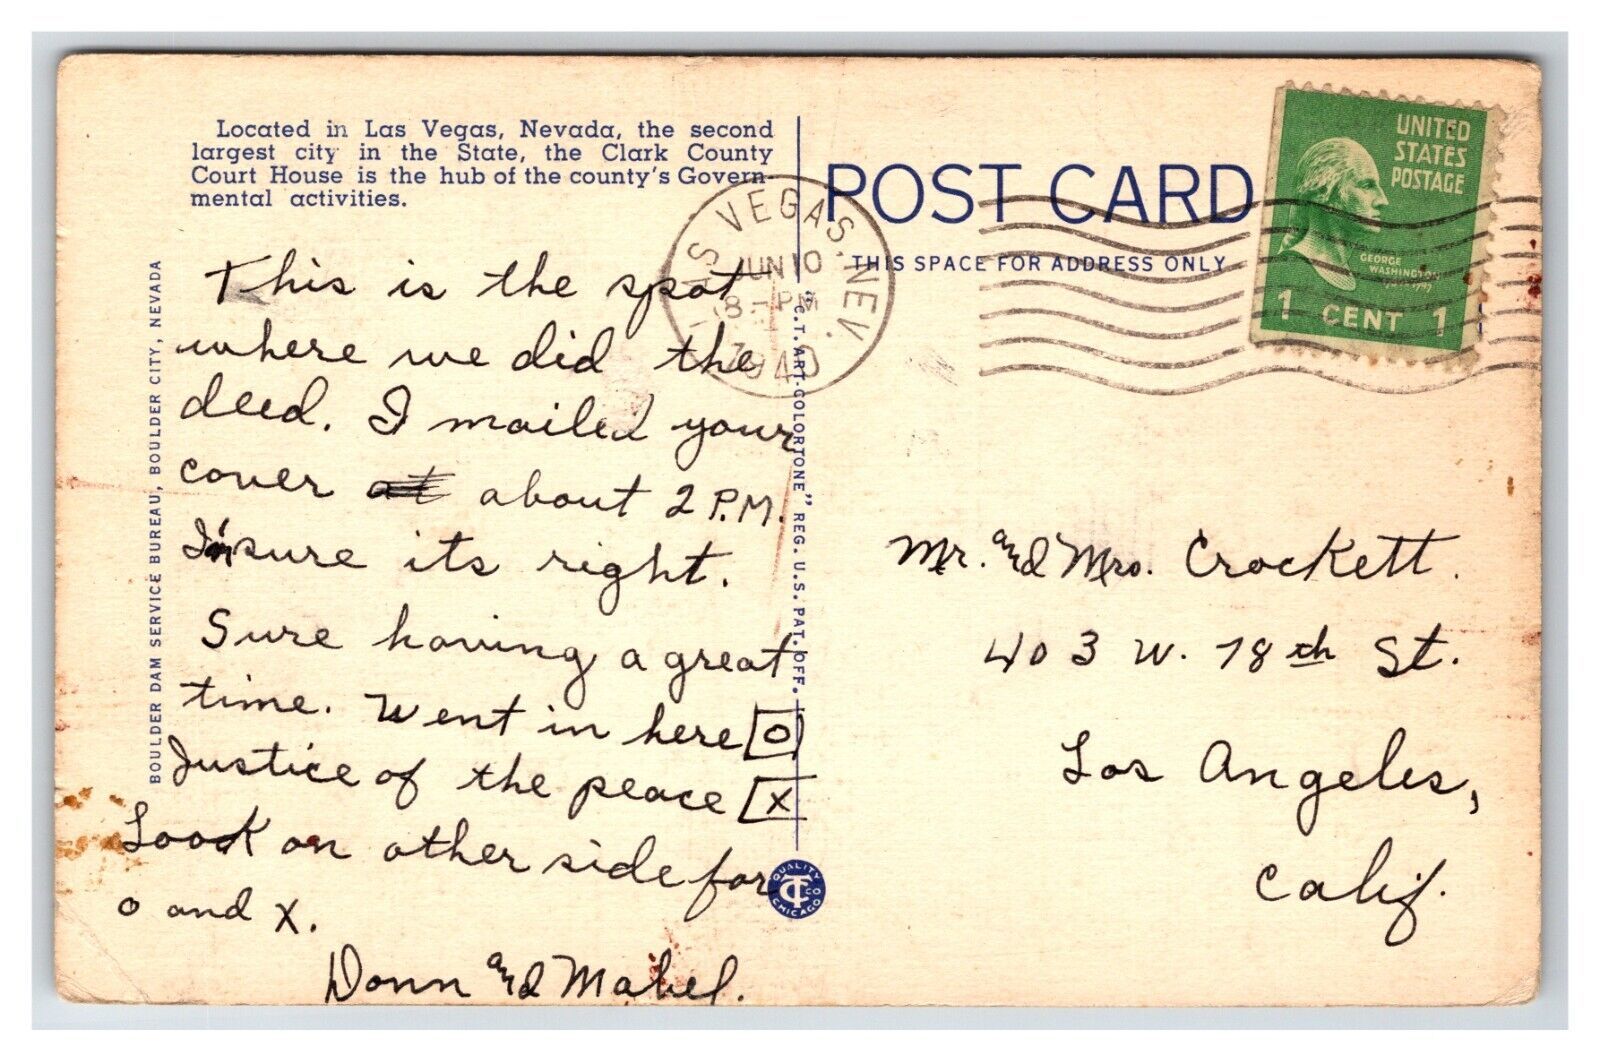 Located in Las Vegas, Nevada, the second
largest city in the State, the Clark County
Court House is the hub of the county's Govern-
mental activities.
This is the spot
where we did the
deed. I mailed your
cover at about 2 P.M.
I'm sure its right.
Sure having a great
time. Went in here O
Justice of the peace X
Look on other side for
o and X.
Donn and Mabel.
BOULDER DAM SERVICE BUREAU, BOULDER CITY, NEVADA
"C.T. ART-COLORTONE" REG. U.S. PAT. OFF.
QUALITY
CT CO
CHICAGO
POST CARD
THIS SPACE FOR ADDRESS ONLY
LAS VEGAS, NEV.
JUN 10
8 - PM
1940
UNITED
STATES
POSTAGE
GEORGE
WASHINGTON
1 CENT 1
Mr. and Mrs. Crockett.
403 W. 78th St.
Los Angeles,
Calif.